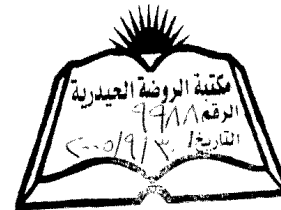 مكتبة الروضة الحيدرية
الرقم ٩٩٨٨
التاريخ ٢٠٠٥/٩/٣٠